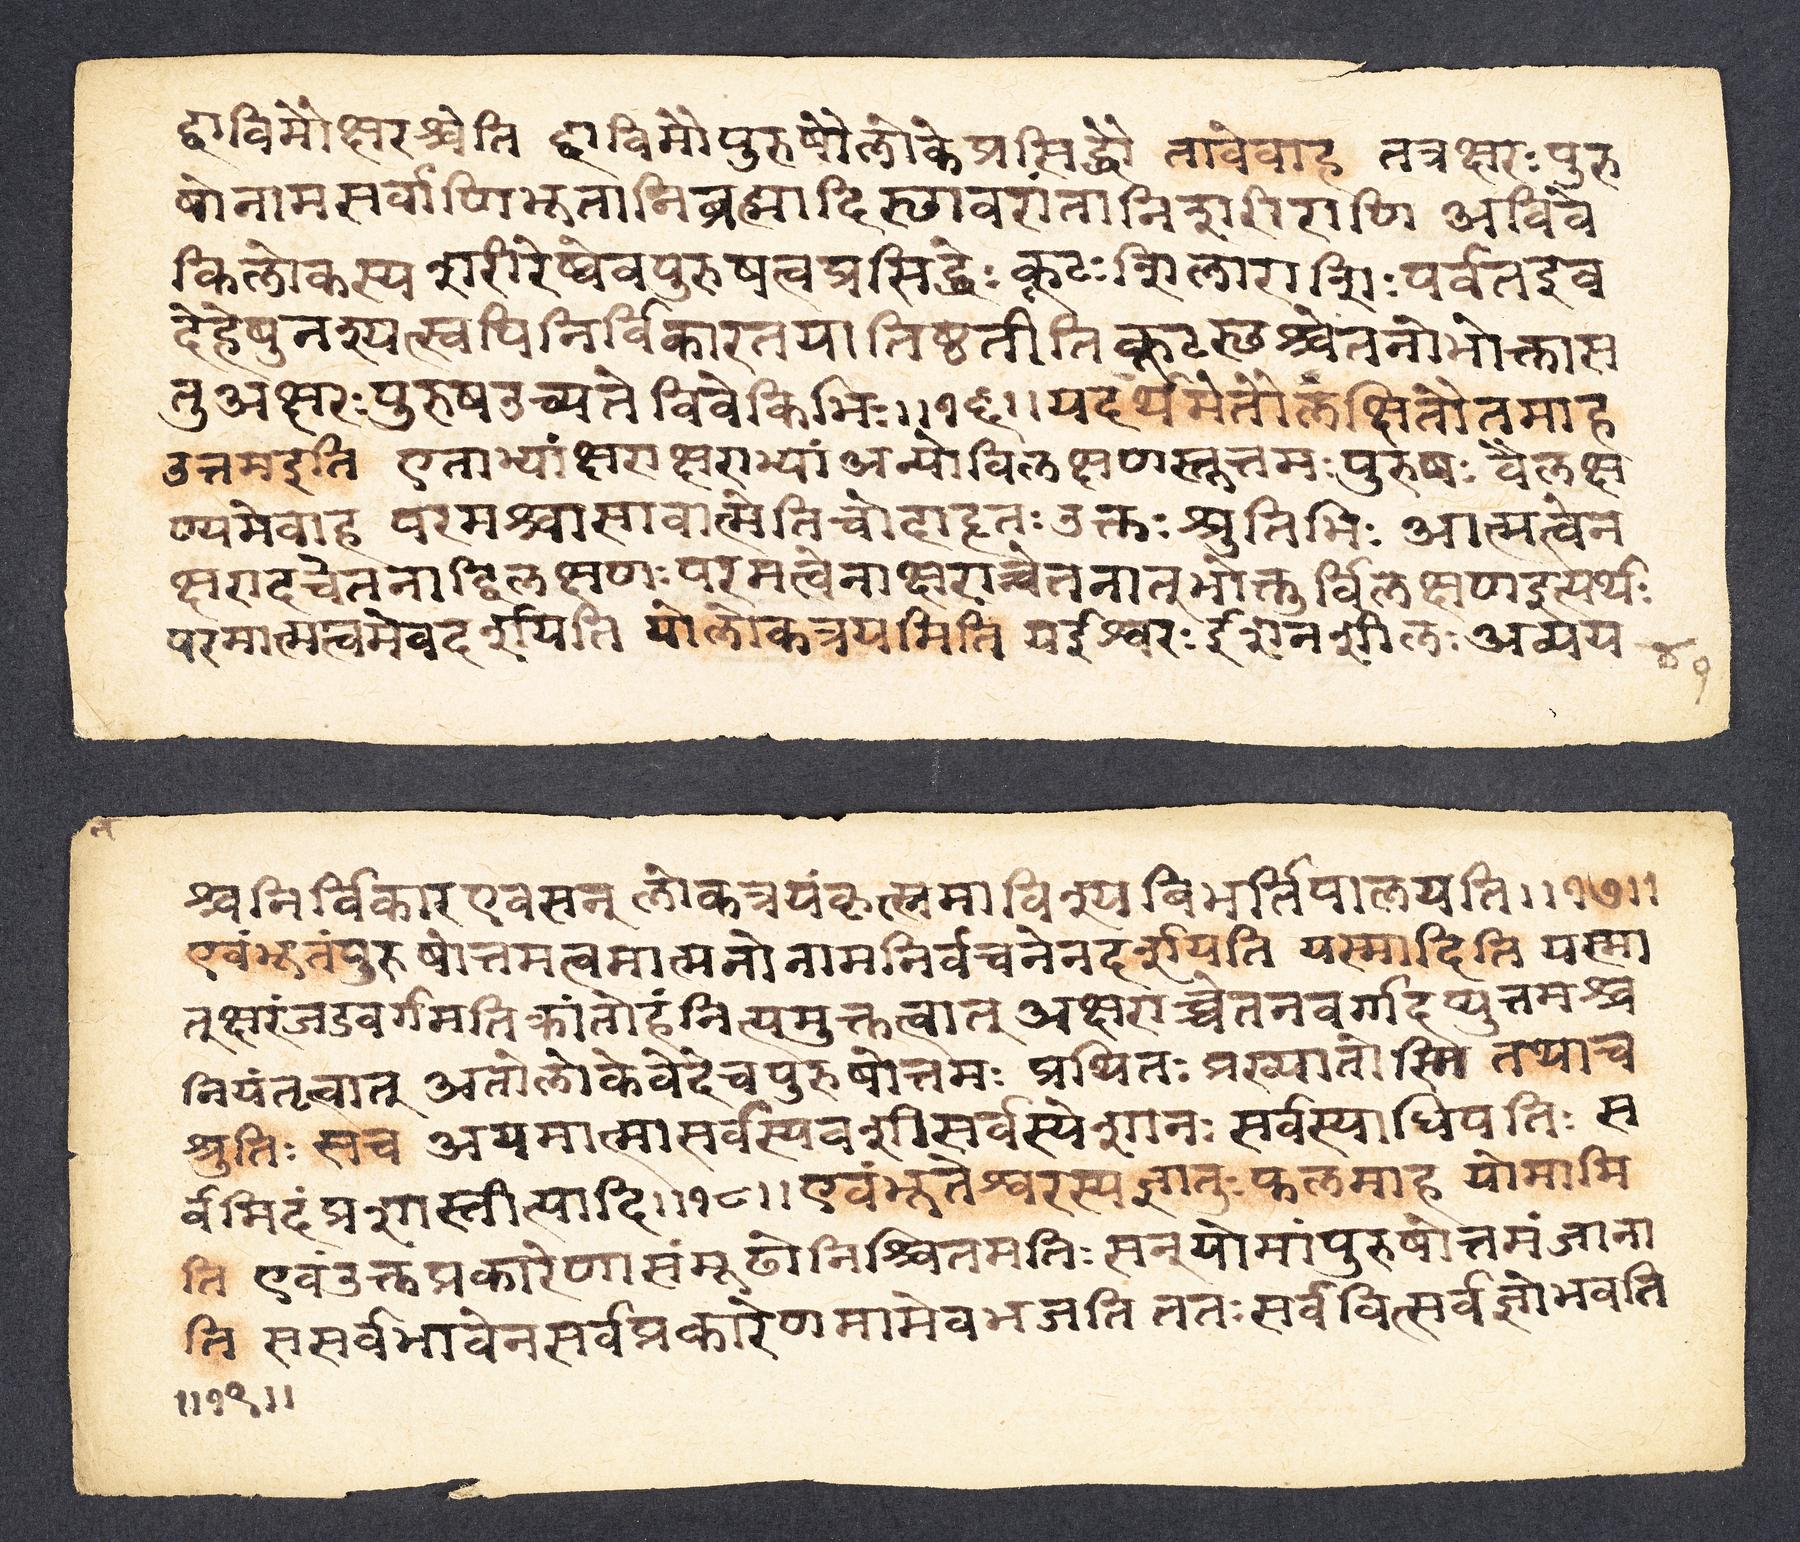 द्वाविमौक्षरश्चेति द्वाविमौपुरुषौलोकेप्रसिद्धौ तावेवाह तत्रक्षरःपुरु
षोनामसर्वाणिभूतानिब्रह्मादिस्थावरांतानिशरीराणि अविवे
किलोकस्यशरीरेष्वेवपुरुषत्वप्रसिद्धेः कूटःशिलाराशिःपर्वतइव
देहेषुनश्यत्स्वपिनिर्विकारतयातिष्ठतीतिकूटस्थश्चेतनोभोक्तास
तुअक्षरःपुरुषउच्यतेविवेकिभिः॥१६॥यदर्थमेतौलक्षितौतमाह
उत्तमइति एताभ्यांक्षराक्षराभ्यांअन्योविलक्षणस्तूत्तमःपुरुषः वैलक्ष
ण्यमेवाह परमश्चासावात्मेतिचोदाहृतःउक्तःश्रुतिभिः आत्मत्वेन
क्षरादचेतनाद्विलक्षणःपरमत्वेनाक्षराच्चेतनात्भोक्तुर्विलक्षणइत्यर्थः
परमात्मत्वमेवदर्शयति योलोकत्रयमिति यईश्वरःईशनशीलःअव्यय
४१
श्चनिर्विकारएवसन् लोकत्रयंकृत्स्नमाविश्यबिभर्तिपालयति॥१७॥
एवंभूतंपुरुषोत्तमत्वमात्मनोनामनिर्वचनेनदर्शयति यस्मादिति यस्मा
त्क्षरंजडवर्गमतिक्रांतोहंनित्यमुक्तत्वात् अक्षराच्चेतनवर्गादप्युत्तमश्च
नियंतृत्वात् अतोलोकेवेदेचपुरुषोत्तमः प्रथितःप्रख्यातोस्मि तथाच
श्रुतिः सच अयमात्मासर्वस्यवशीसर्वस्येशानःसर्वस्याधिपतिः स
र्वमिदंप्रशास्तीत्यादि॥१८॥एवंभूतेश्वरस्यज्ञातुःफलमाह योमामि
ति एवंउक्तप्रकारेणासंमूढोनिश्चितमतिःसन्योमांपुरुषोत्तमंजाना
ति ससर्वभावेनसर्वप्रकारेणमामेवभजति ततःसर्ववित्सर्वज्ञोभवति
॥१९॥